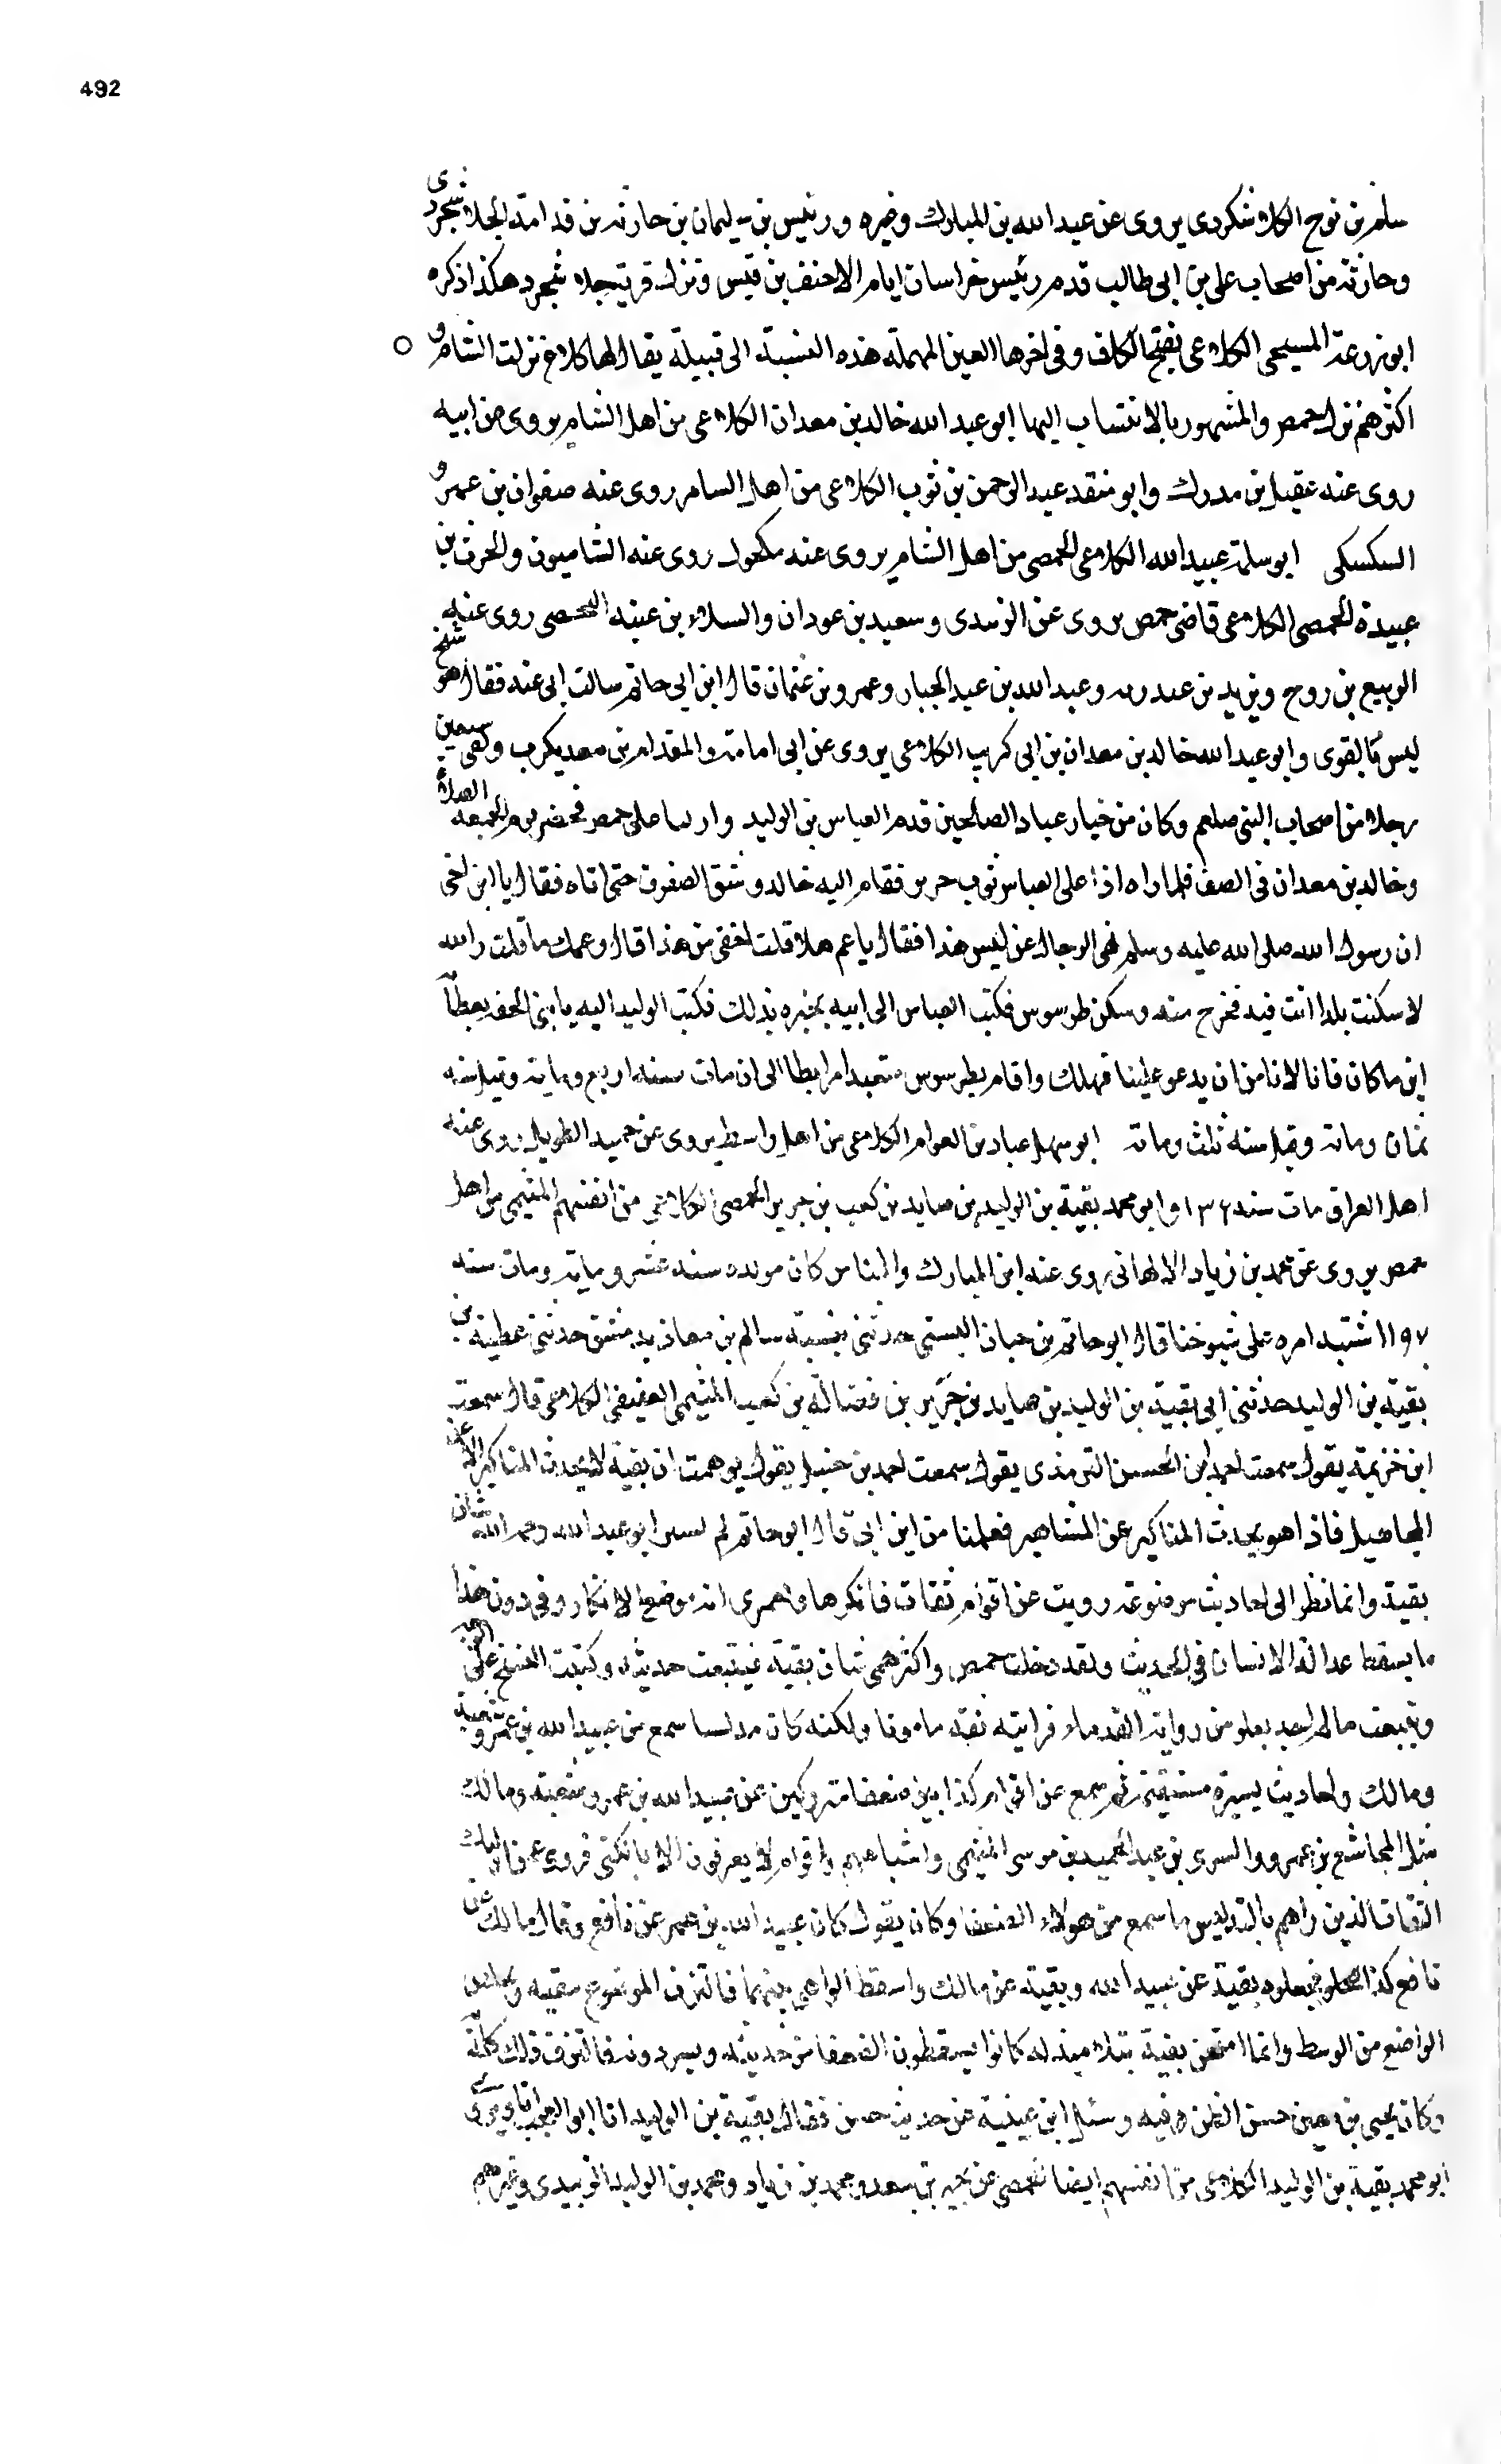 492
سلم بن نوح الكلاشكردى يروى عن عبد الله بن المبارك وغيره ورئيس بن سليمان بن حارثه بن قدامة الجلاشجردى
وحارثة من اصحاب على بن ابى طالب قدم رئيس خراسان ايام الاحنف بن قيس ونزل قرية جلاشجرد هكذا ذكره
ابو زرعة المسيحى الكلاعى بفتح الكاف وفى اخرها العين المهملة هذه النسبة الى قبيلة يقال لها كلاع نزلت الشام و
اكثرهم نزل حمص والمشهور بالانتساب اليها ابو عبد الله خالد بن معدان الكلاعى من اهل الشام يروى عن ابيه
روى عنه عقيل بن مدرك وابو منقد عبد الرحمن بن ثوب الكلاعى من اهل السام روى عنه صفوان بن عمرو
السكسكى ابو سلمة عبيد الله الكلاعى الحمصى من اهل الشام يروى عنه مكحول روى عنه الشاميون والحرث بن
عبيدة الحمصى الكلاعى قاضى حمص يروى عن الزبيدى وسعيد بن عودان والسلاء بن عتبه روى عنه
الربيع بن روح ويزيد بن عبد ربه وعبد الله بن عبد الجبار وعمرو بن عثمان قال ابن ابى حاتم سالت ابى عنه فقال هو شيخ
ليس بالقوى وابو عبد الله خالد بن معدان بن ابى كرب الكلاعى يروى عن ابى امامة والمقدام بن معديكرب ولقى سبعين
رجلا من اصحاب النبى صلعم وكان من خيار عباد الصالحين قدم العباس بن الوليد واليا على حمص فحضر يوم الجمعة الصلاة
وخالد بن معدان فى الصف فلما راه اذا على العباس ثوب حرير فقام اليه خالد وشق الصفوف حتى اتاه فقال يا ابن اخى
ان رسول الله صلى الله عليه وسلم نهى الرجال عن لبس هذا فقال يا عم هلا قلت اخفى من هذا قال وعمك ما قلت والله
لا سكنت بلدا انت فيه فخرج منه وسكن طرسوس فكتب العباس الى ابيه يخبره بذلك فكتب الوليد اليه يا بنى الحقه بعطائه
اين ما كان فانا لا نامن ان يدعو علينا فهلك واقام بطرسوس متعبدا مرابطا الى ان مات سنه اربع وماية وقيل سنه
ثمان وماية وقيل سنه ثلث وماية ابو سهل عباد بن العوام الكلاعى من اهل واسط يروى عن حميد الطويل روى عنه
اهل العراق مات سنه وابو محمد بقية بن الوليد بن صايد بن كعب بن جرير الحمصى الكلاعى من انفسهم الميتمى من اهل
حمص يروى عن محمد بن زياد الالهانى روى عنه ابن المبارك والناس كان مولده سنه عشر وماية ومات سنه
١١٩٧ اشتبه امره على شيوخنا قال ابو حاتم بن حبان البستى حدثنى سالم بن معاذ بدمشق حدثنى عطية بن
بقية بن الوليد حدثنى ابى بقية بن الوليد بن صايد بن جرير بن فضالة بن كعب الميتمى الكلاعى قال سمعت
ابن خزيمة يقول سمعت احمد بن الحسن الترمذى يقول سمعت احمد بن حنبل يقول توهمت ان بقية لا يحدث المناكير الا عن
المجاهيل فاذا هو يحدث المناكير عن المشاهير فعلمنا من اين اتى قال ابو حاتم لم يسبر ابو عبد الله رحمه الله شان
بقية وانما نظر الى احاديث موضوعة رويت عن اقوام ثقات فانكرها ولعمرى انه موضع الانكار وفى دون هذا
ما يسقط عدالة الانسان فى الحديث ولقد دخلت حمص واكثر همى شان بقية فتتبعت حديثه وكتبت النسخ على الوجه
وتتبعت ما لم اجد بعلو من رواية القدماء فرايته ثقة مامونا ولكنه كان مدلسا سمع من عبيد الله بن عمر وشعبة
ومالك احاديث يسيرة مستقيمة ثم سمع عن اقوام كذابين ضعفا متروكين عن عبيد الله بن عمر وشعبة ومالك
مثل المجاشع بن عمرو والسرى بن عبد الحميد بن موسى الميتمى واشباههم واقوام لا يعرفون الا بالكنى فروى عن اوليك
الثقات الذين راهم بالتدليس ما سمع من هولاء الضعفا وكان يقول كان عبيد الله بن عمر عن نافع وقال مالك عن
نافع كذا فجعلوه بقية عن عبيد الله وبقية عن مالك واسقط الواهى بينهما فالتزق الموضوع ببقية وتخلص
الواضع من الوسط وانما امتحن بقية بتلاميذ له كانوا يسقطون الضعفا من حديثه ويسوونه فالتزق ذلك كله
وكان يحيى بن معين حسن الظن فيه وسئل ابن عيينة عن حديث حسن فقال بقية بن الوليد انا ابو العجب انا ويروى
ابو محمد بقية بن الوليد الكلاعى من انفسهم ايضا حمصى عن بحير بن سعد ومحمد بن زياد ومحمد بن الوليد الزبيدى وغيرهم